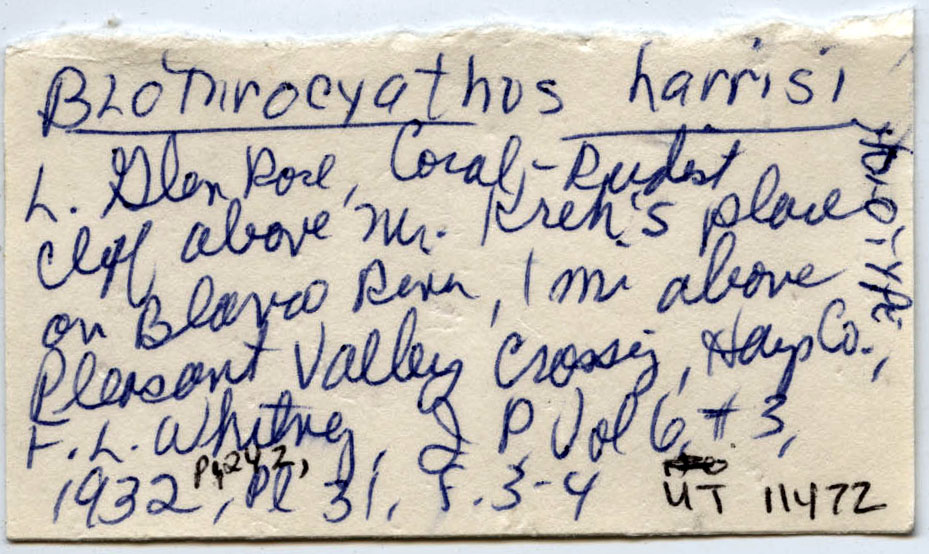 Blothrocyathus harrisi
L. Glen Rose, Coral-Rudist
cliff above Mr. Kreh's place
on Blanco River, 1 mi above
Pleasant Valley Crossing, Hays Co.,
F. L. Whitney, J P Vol 6, #3,
1932, Pl 31, F. 3-4
UT 11472
Holotype